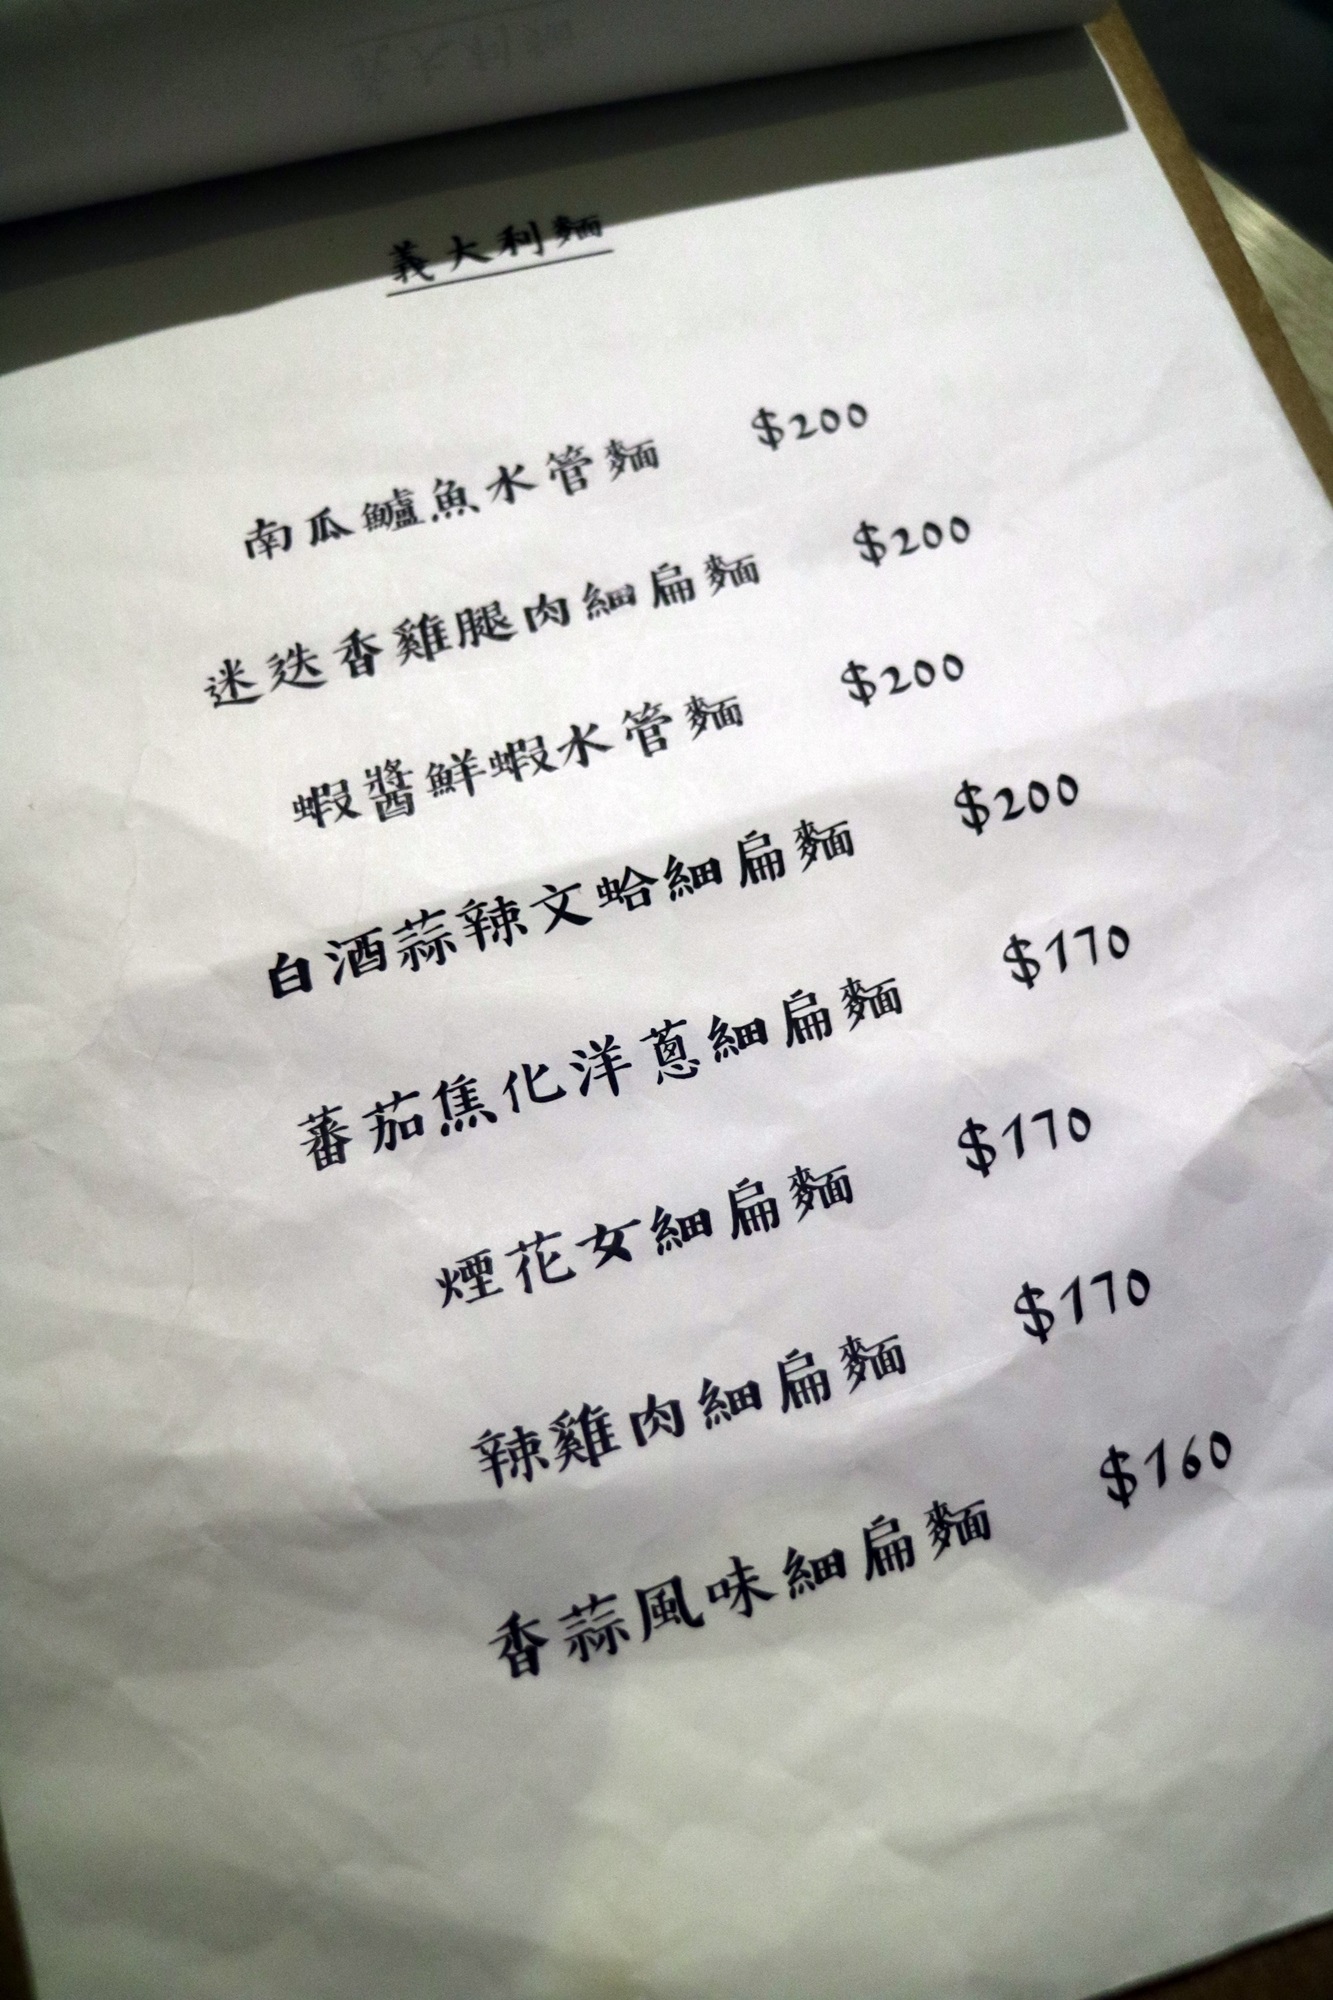 義大利麵
南瓜鱸魚水管麵 $200
迷迭香雞腿肉細扁麵 $200
蝦醬鮮蝦水管麵 $200
白酒蒜辣文蛤細扁麵 $200
蕃茄焦化洋蔥細扁麵 $170
煙花女細扁麵 $170
辣雞肉細扁麵 $170
香蒜風味細扁麵 $160